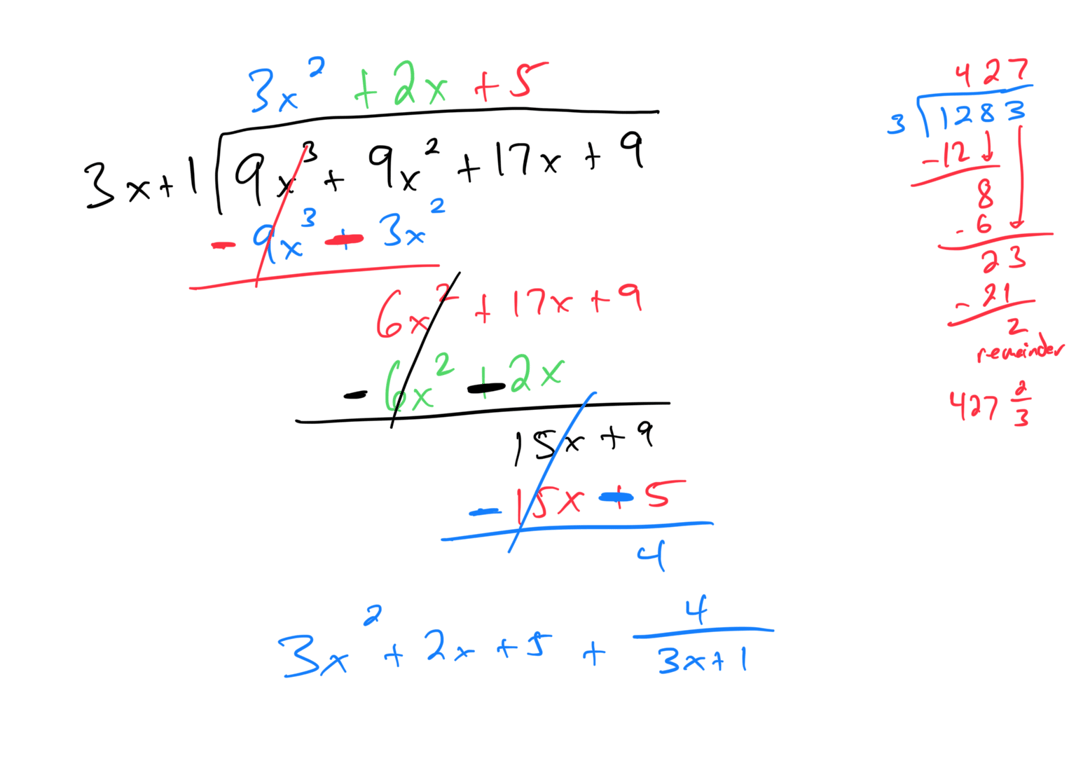 3x² + 2x + 5
3x + 1 ⟌ 9x³ + 9x² + 17x + 9
- 9x³ - 3x²
6x² + 17x + 9
- 6x² - 2x
15x + 9
- 15x - 5
4
3x² + 2x + 5 + 4/(3x + 1)
427
3 ⟌ 1283
-12
8
-6
23
-21
2
remainder
427 2/3